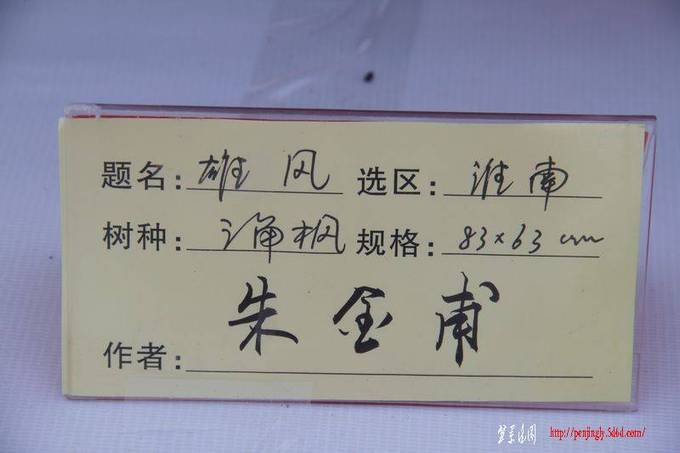 题名：雄风 选区：淮南
树种：三角枫 规格：83×63cm
作者：朱金甫
http://penjingly.5d6d.com/